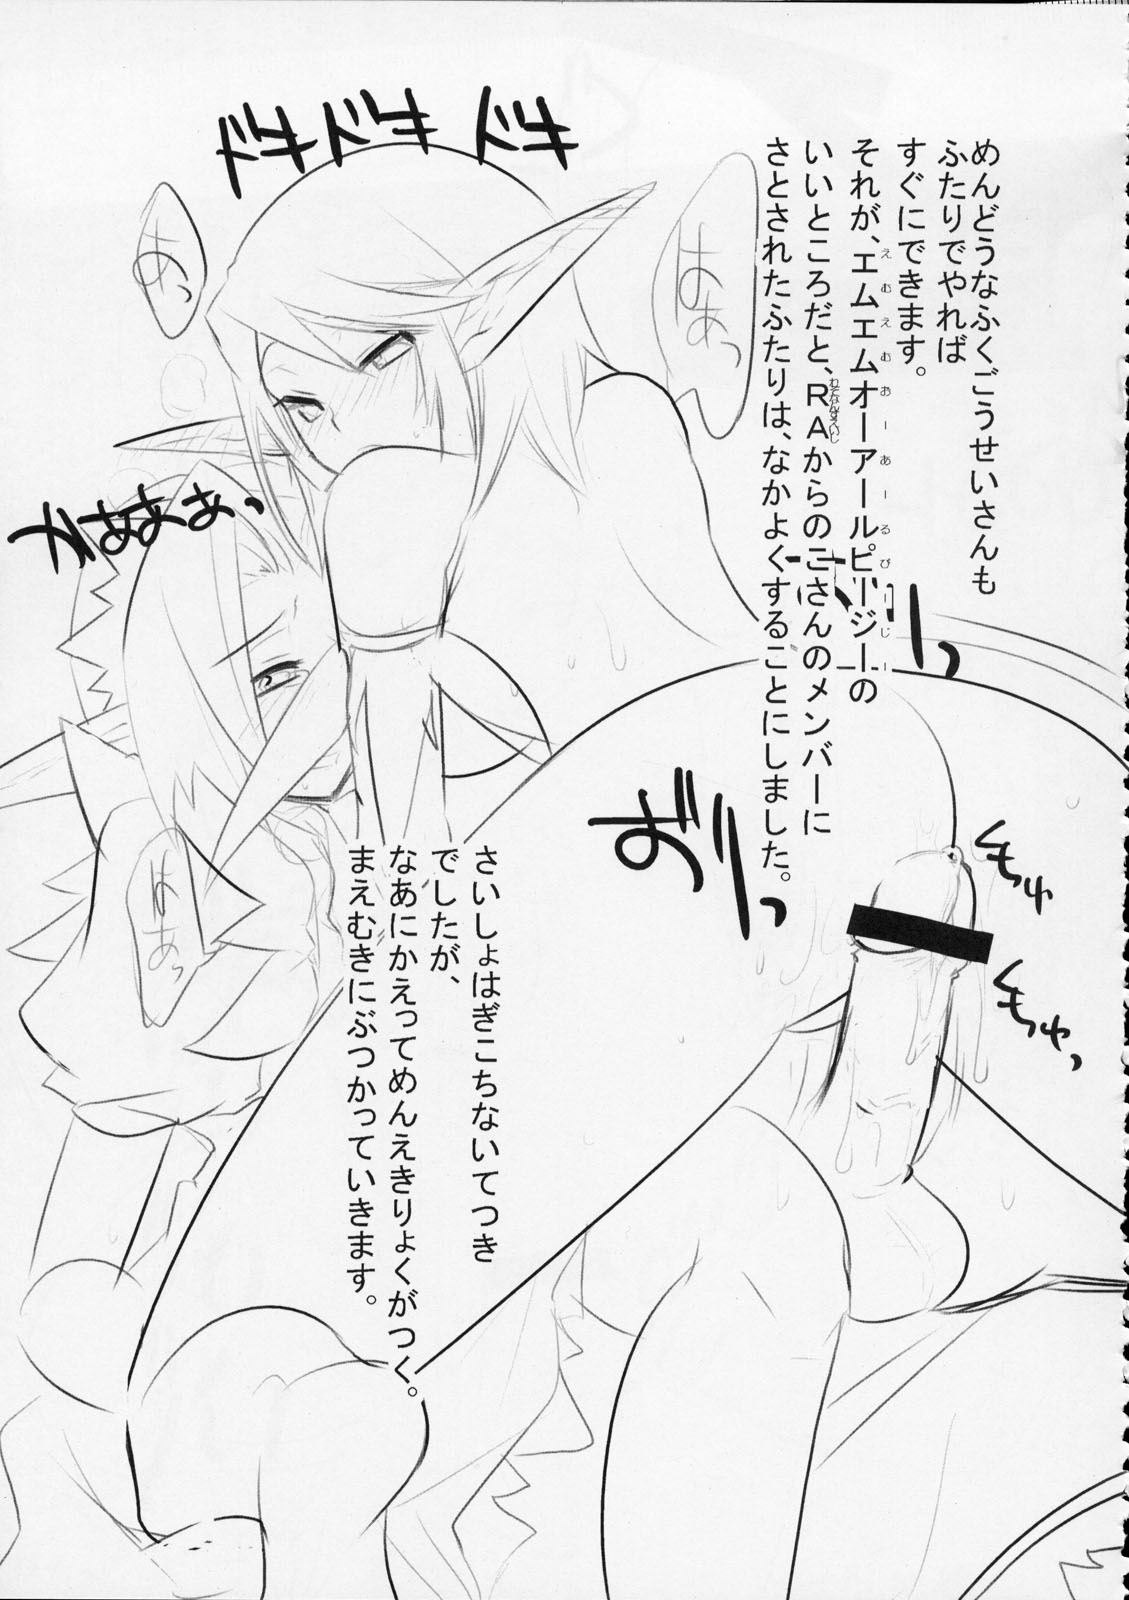 めんどうなふくごうせいさんも
ふたりでやれば
すぐにできます。
それが、エムエムオーアールピージーの
えむえむおーあーるぴーじー
いいところだと、RAからのこさんのメンバーに
さとされたふたりは、なかよくすることにしました。
ドキドキドキ
はぁっ
あっ
かぁぁぁぁっ
はぁっ
おずりっ
もちゅ
もちゅっ
さいしょはぎこちないてつき
でしたが、
なあにかえってめんえきりょくがつく。
まえむきにぶつかっていきます。